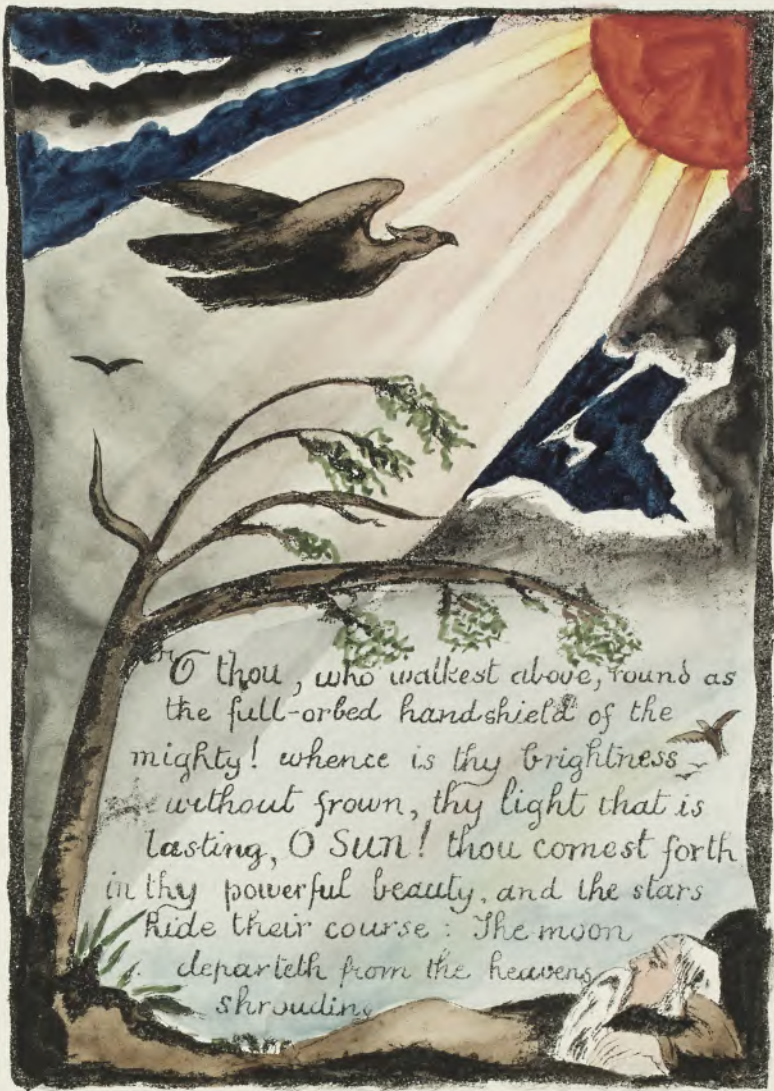 O thou, who walkest above, round as
the full-orbed handshield of the
mighty! whence is thy brightness
without frown, thy light that is
lasting, O Sun! thou comest forth
in thy powerful beauty, and the stars
hide their course: The moon
departeth from the heavens
shrouding